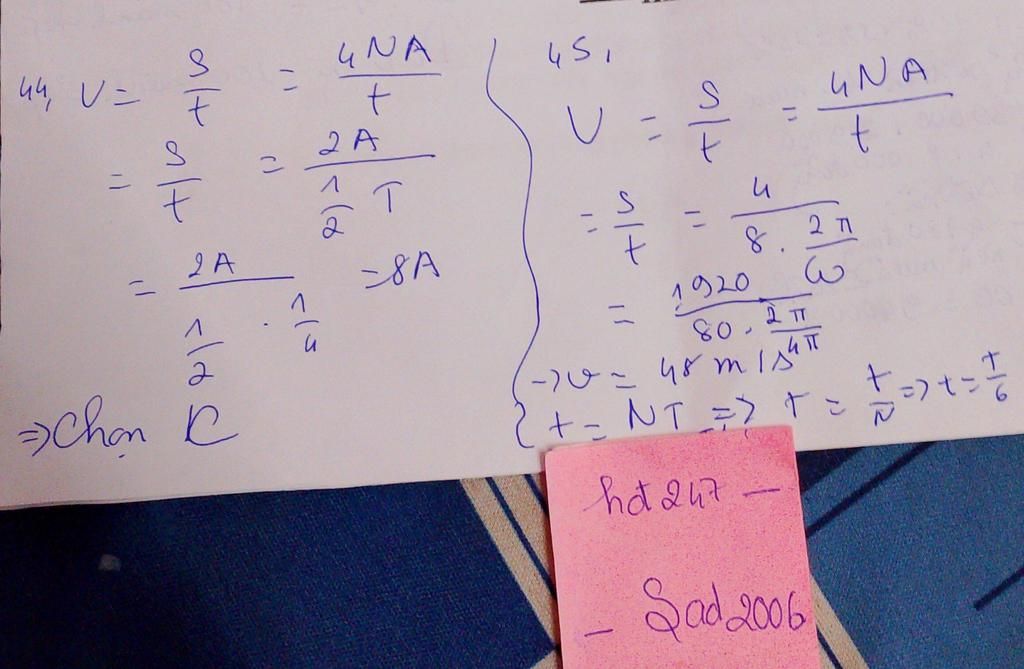 44, V = S/t = 4NA/t
= S/t = 2A/(1/2 T)
= 2A/(1/2 . 1/4) = 8A
=> Chọn C
45,
V = S/t = 4NA/t
= S/t = 4/(8 . 2π/ω)
= 1920/(80 . 2π/4π)
-> v = 48 m/s
t = NT => T = t/N => t = T/6
hot 247 —
— Sad2006